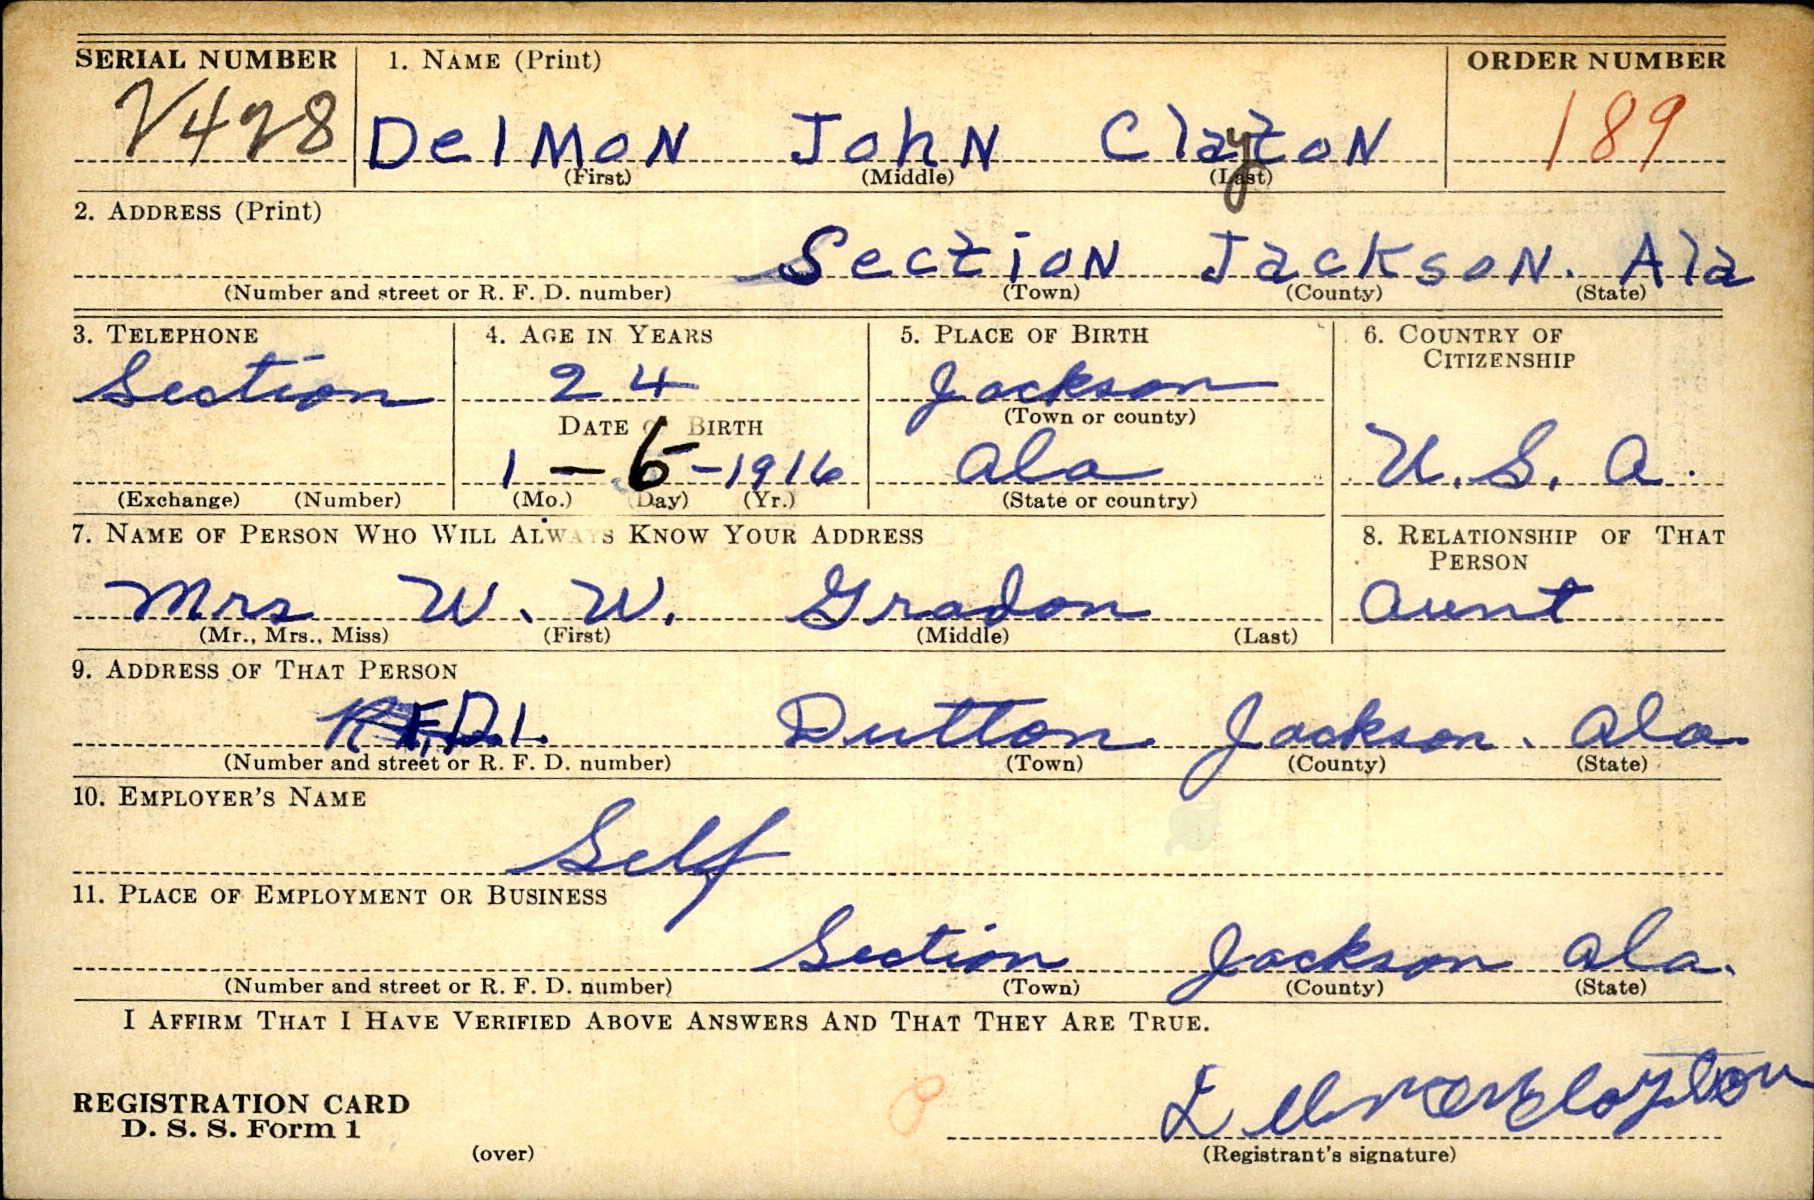 SERIAL NUMBER 1. NAME (Print) ORDER NUMBER
V428 Delmon John Clayton 189
(First) (Middle) (Last)
2. ADDRESS (Print)
Section Jackson. Ala
(Number and street or R. F. D. number) (Town) (County) (State)
3. TELEPHONE 4. AGE IN YEARS 5. PLACE OF BIRTH 6. COUNTRY OF CITIZENSHIP
Section 24 Jackson
(Town or county)
DATE BIRTH
1 - 6 - 1916 Ala U. S. A.
(Exchange) (Number) (Mo.) (Day) (Yr.) (State or country)
7. NAME OF PERSON WHO WILL ALWAYS KNOW YOUR ADDRESS 8. RELATIONSHIP OF THAT PERSON
Mrs W. W. Gradon Aunt
(Mr., Mrs., Miss) (First) (Middle) (Last)
9. ADDRESS OF THAT PERSON
R.F.D.1. Dutton Jackson. Ala.
(Number and street or R. F. D. number) (Town) (County) (State)
10. EMPLOYER'S NAME
Self
11. PLACE OF EMPLOYMENT OR BUSINESS
Section Jackson Ala.
(Number and street or R. F. D. number) (Town) (County) (State)
I AFFIRM THAT I HAVE VERIFIED ABOVE ANSWERS AND THAT THEY ARE TRUE.
REGISTRATION CARD
D. S. S. Form 1
Delmon Clayton
(over) (Registrant's signature)